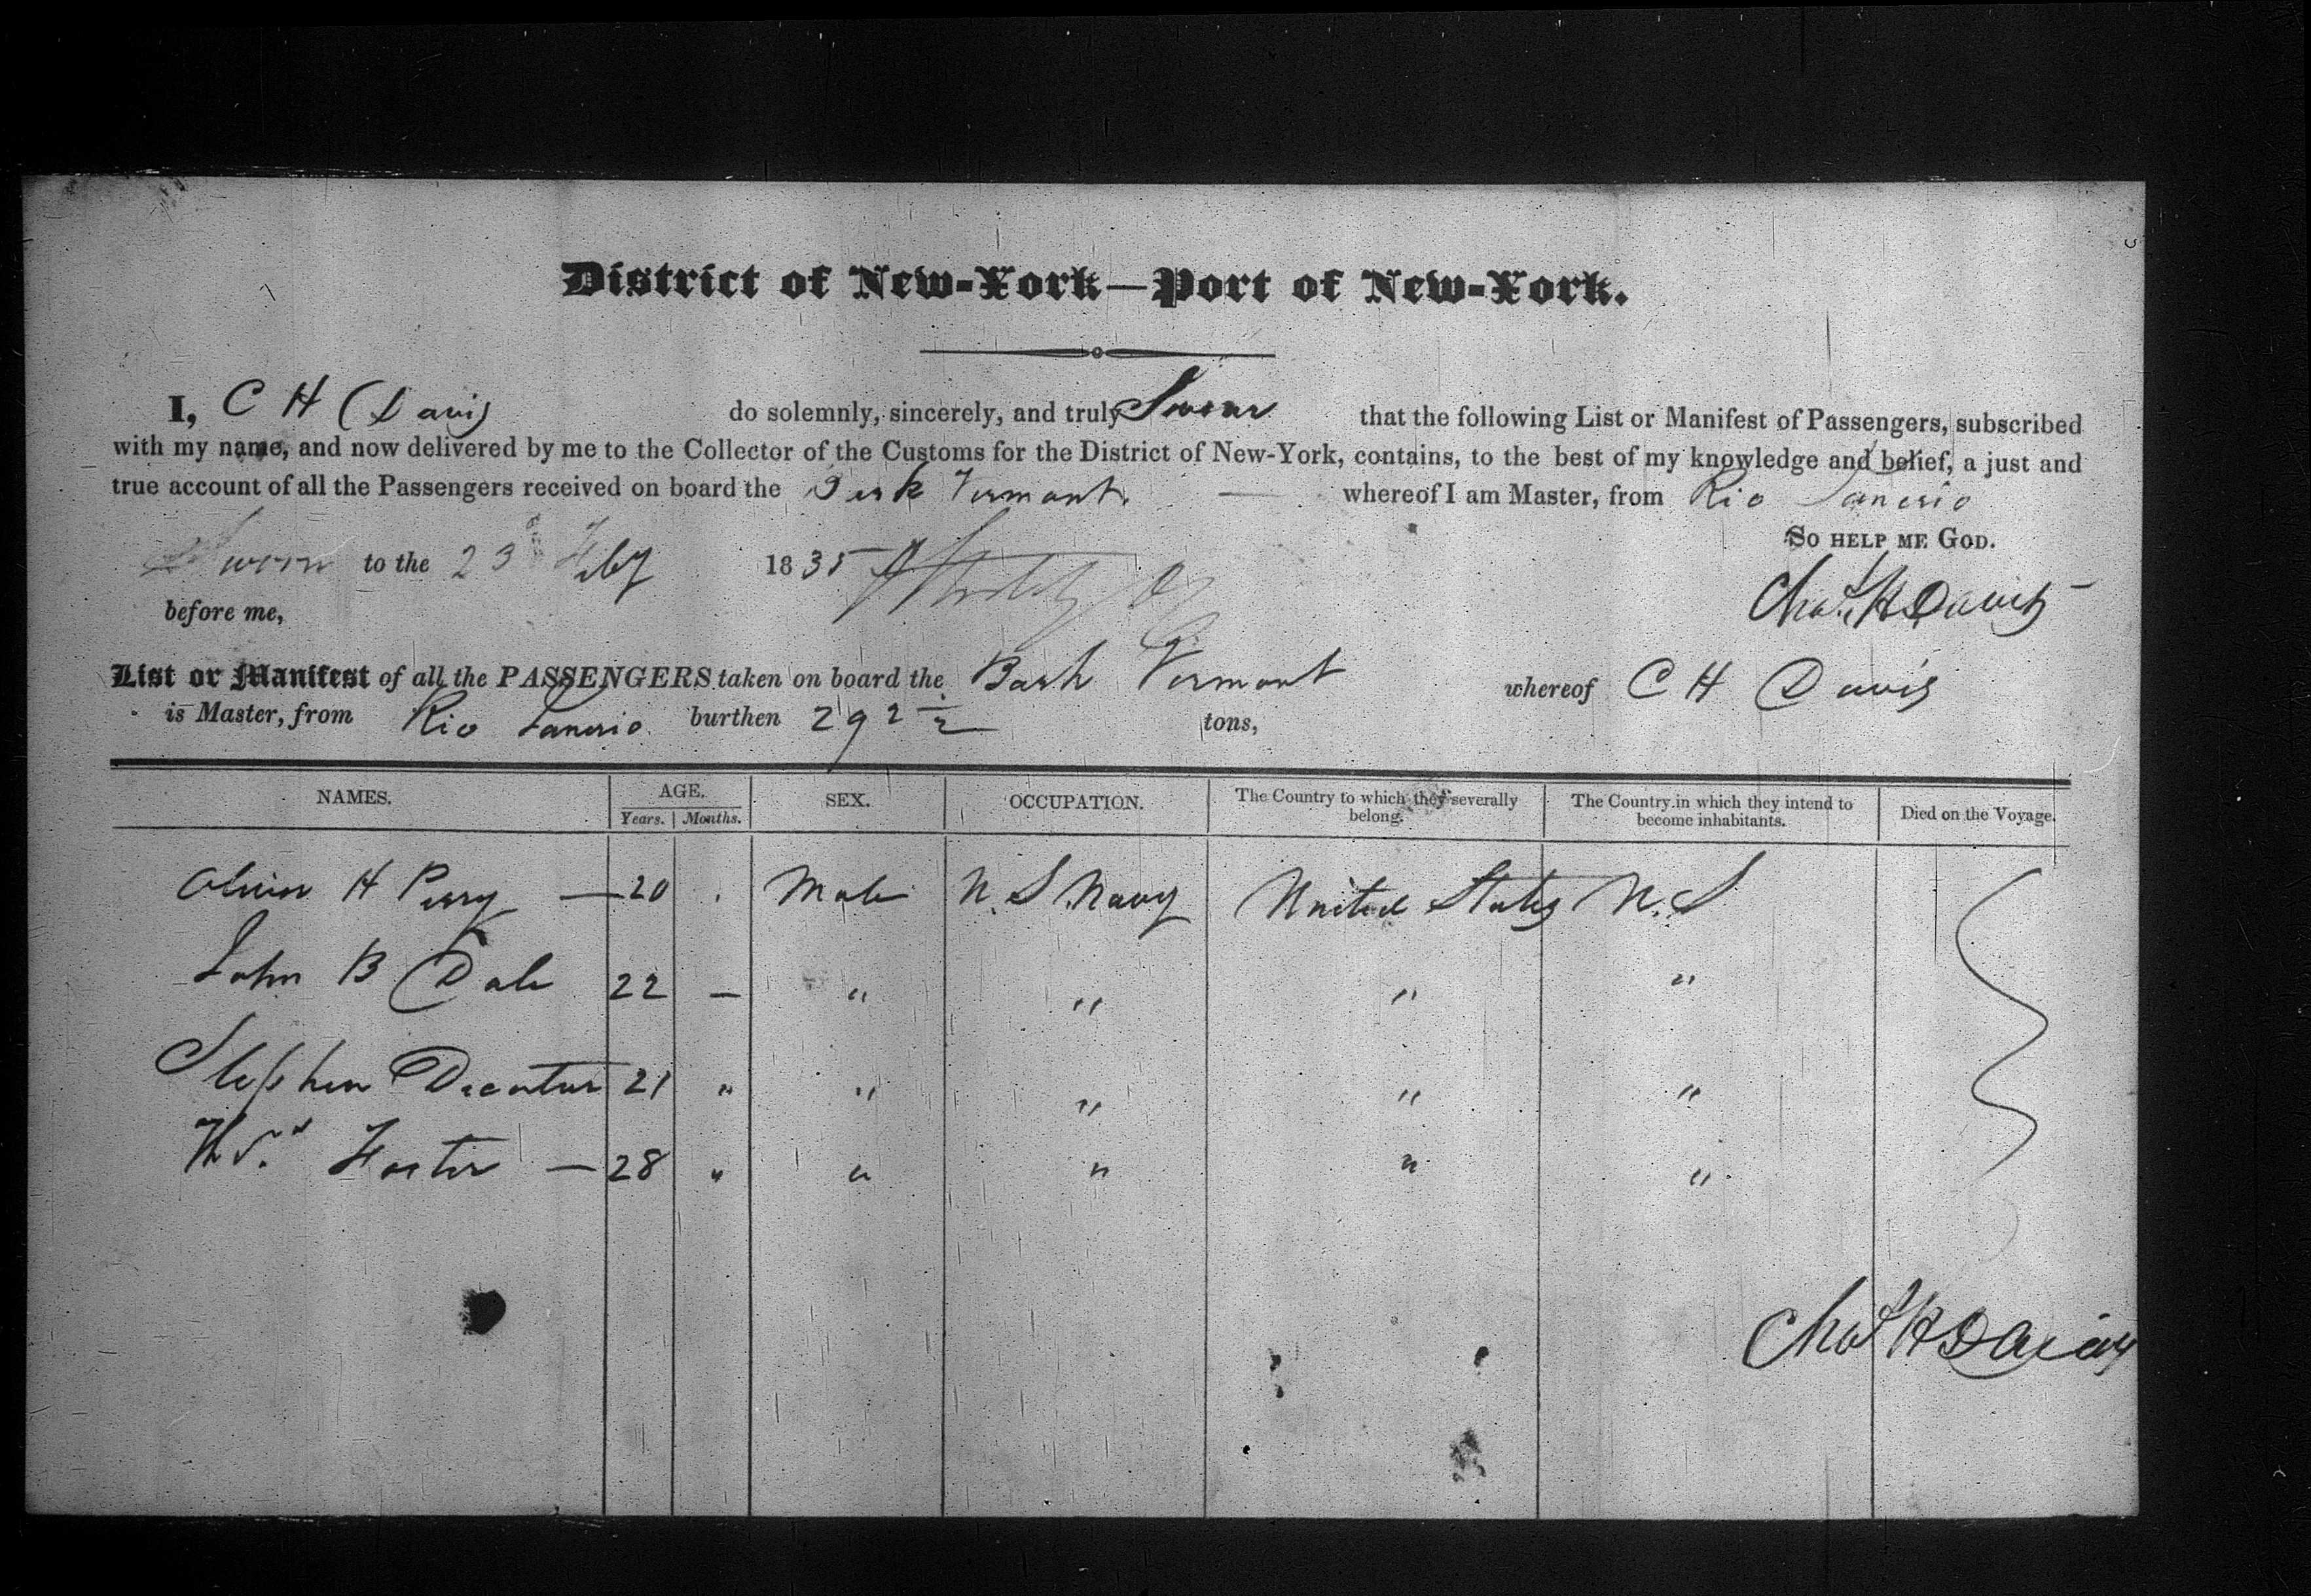 District of New-York—Port of New-York.
I, C H Davis do solemnly, sincerely, and truly Swear that the following List or Manifest of Passengers, subscribed
with my name, and now delivered by me to the Collector of the Customs for the District of New-York, contains, to the best of my knowledge and belief, a just and
true account of all the Passengers received on board the Bark Vermont. whereof I am Master, from Rio Janerio
So help me God.
Sworn to the 23 Feby 1835
Chas H Davis
before me,
List or Manifest of all the PASSENGERS taken on board the Bark Vermont whereof C H Davis
is Master, from Rio Janerio burthen 292 tons,
NAMES. AGE. SEX. OCCUPATION. The Country to which they severally belong. The Country in which they intend to become inhabitants. Died on the Voyage.
Years. Months.
Oliver H Perry — 20 Male U.S. Navy United States U.S
John B Dale 22 — " " " "
Stephen Decatur 21 " " " " "
Foster — 28 " " " " "
Chas H Davis